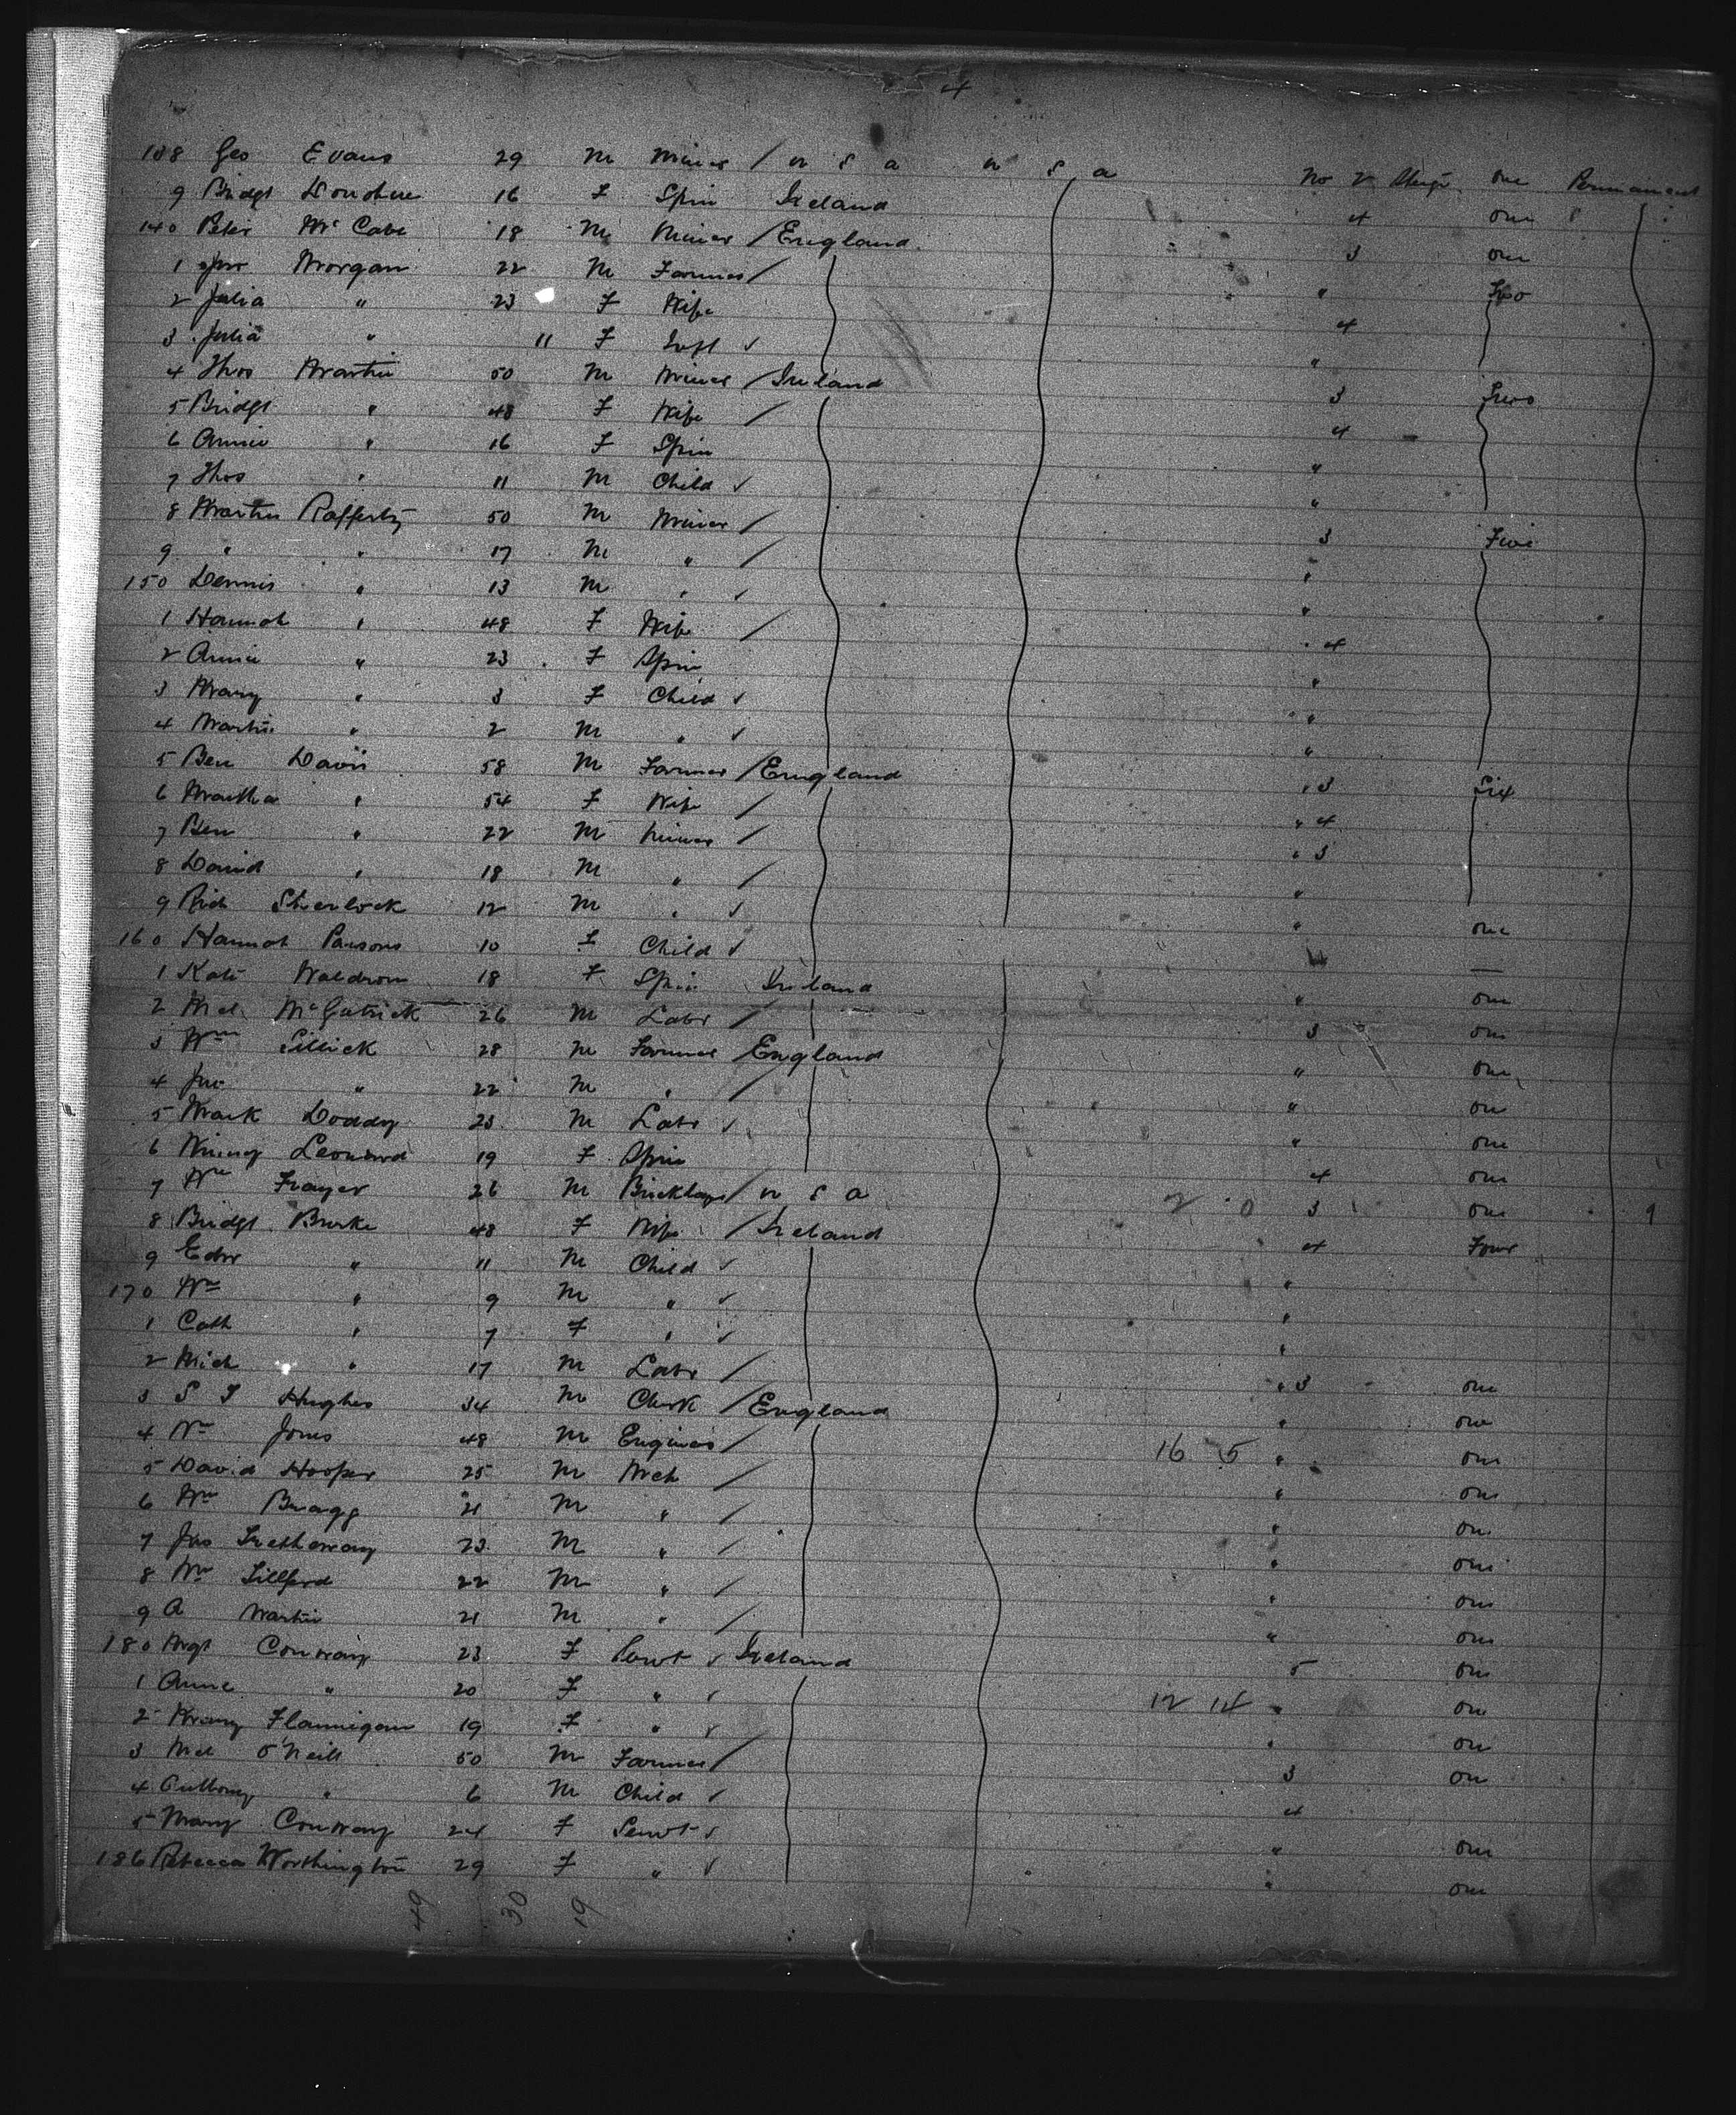 4
138 Geo Evans 29 M Miner / U S A U S A No 2 Stege one Permanent
9 Bridgt Donohue 16 F Spin Ireland 4 one
140 Peter McCabe 18 M Miner / England 3 one
1 Jno Morgan 22 M Farmer / " Two
2 Julia " 23 F Wife 4
3 Julia " 11 F Inft ✓ "
4 Thos Martin 50 M Miner / Ireland 3 Two
5 Bridgt " 48 F Wife / 4
6 Annie " 16 F Spin "
7 Thos " 11 M Child ✓ "
8 Martin Rafferty 50 M Miner / 3 Five
9 " " 17 M " / "
150 Dennis " 13 M " ✓ "
1 Hannah " 48 F Wife / " 4
2 Annie " 23 F Spin "
3 Mary " 3 F Child ✓ "
4 Martin " 2 M " ✓ "
5 Ben Davis 58 M Farmer / England " 3 Six
6 Martha " 54 F Wife / " 4
7 Ben " 22 M Miner / " 3
8 David " 18 M " / "
9 Rich Sherlock 12 M " ✓ " one
160 Hannah Parsons 10 F Child ✓ " —
1 Kate Waldron 18 F Spin Ireland " one
2 Mcl McGatrick 26 M Labr / 3 one
3 Wm Sillick 28 M Farmer / England " one
4 Jno " 22 M " / " one
5 Mark Doddy 23 M Labr ✓ " one
6 Winny Leonard 19 F Spin 4 one
7 Wm Frayer 26 M Bricklayr / U S A 2 0 3 one 9
8 Bridgt Burke 48 F Wife / Ireland 4 Four
9 Edw " 11 M Child ✓ "
170 Wm " 9 M " ✓ "
1 Cath " 7 F " ✓ "
2 Mich " 17 M Labr / " 3 one
3 S J Hughes 34 M Clerk / England " one
4 Wm Jones 48 M Engineer / 16 5 " one
5 David Hooper 25 M Mch / " one
6 Wm Bragg 21 M " / " one
7 Jno Tretheway 23 M " / " one
8 Wm Tillford 22 M " / " one
9 A Martin 21 M " / " one
180 Mgt Conway 23 F Servt ✓ Ireland 5 one
1 Anne " 20 F " ✓ 12 14 " one
2 Mary Flannigan 19 F " ✓ " one
3 Mcl O'Neill 50 M Farmer / 3 one
4 Anthony " 6 M Child ✓ 4
5 Mary Conway 24 F Servt ✓ " one
186 Rebecca Worthington 29 F " ✓ " one
49 30 19